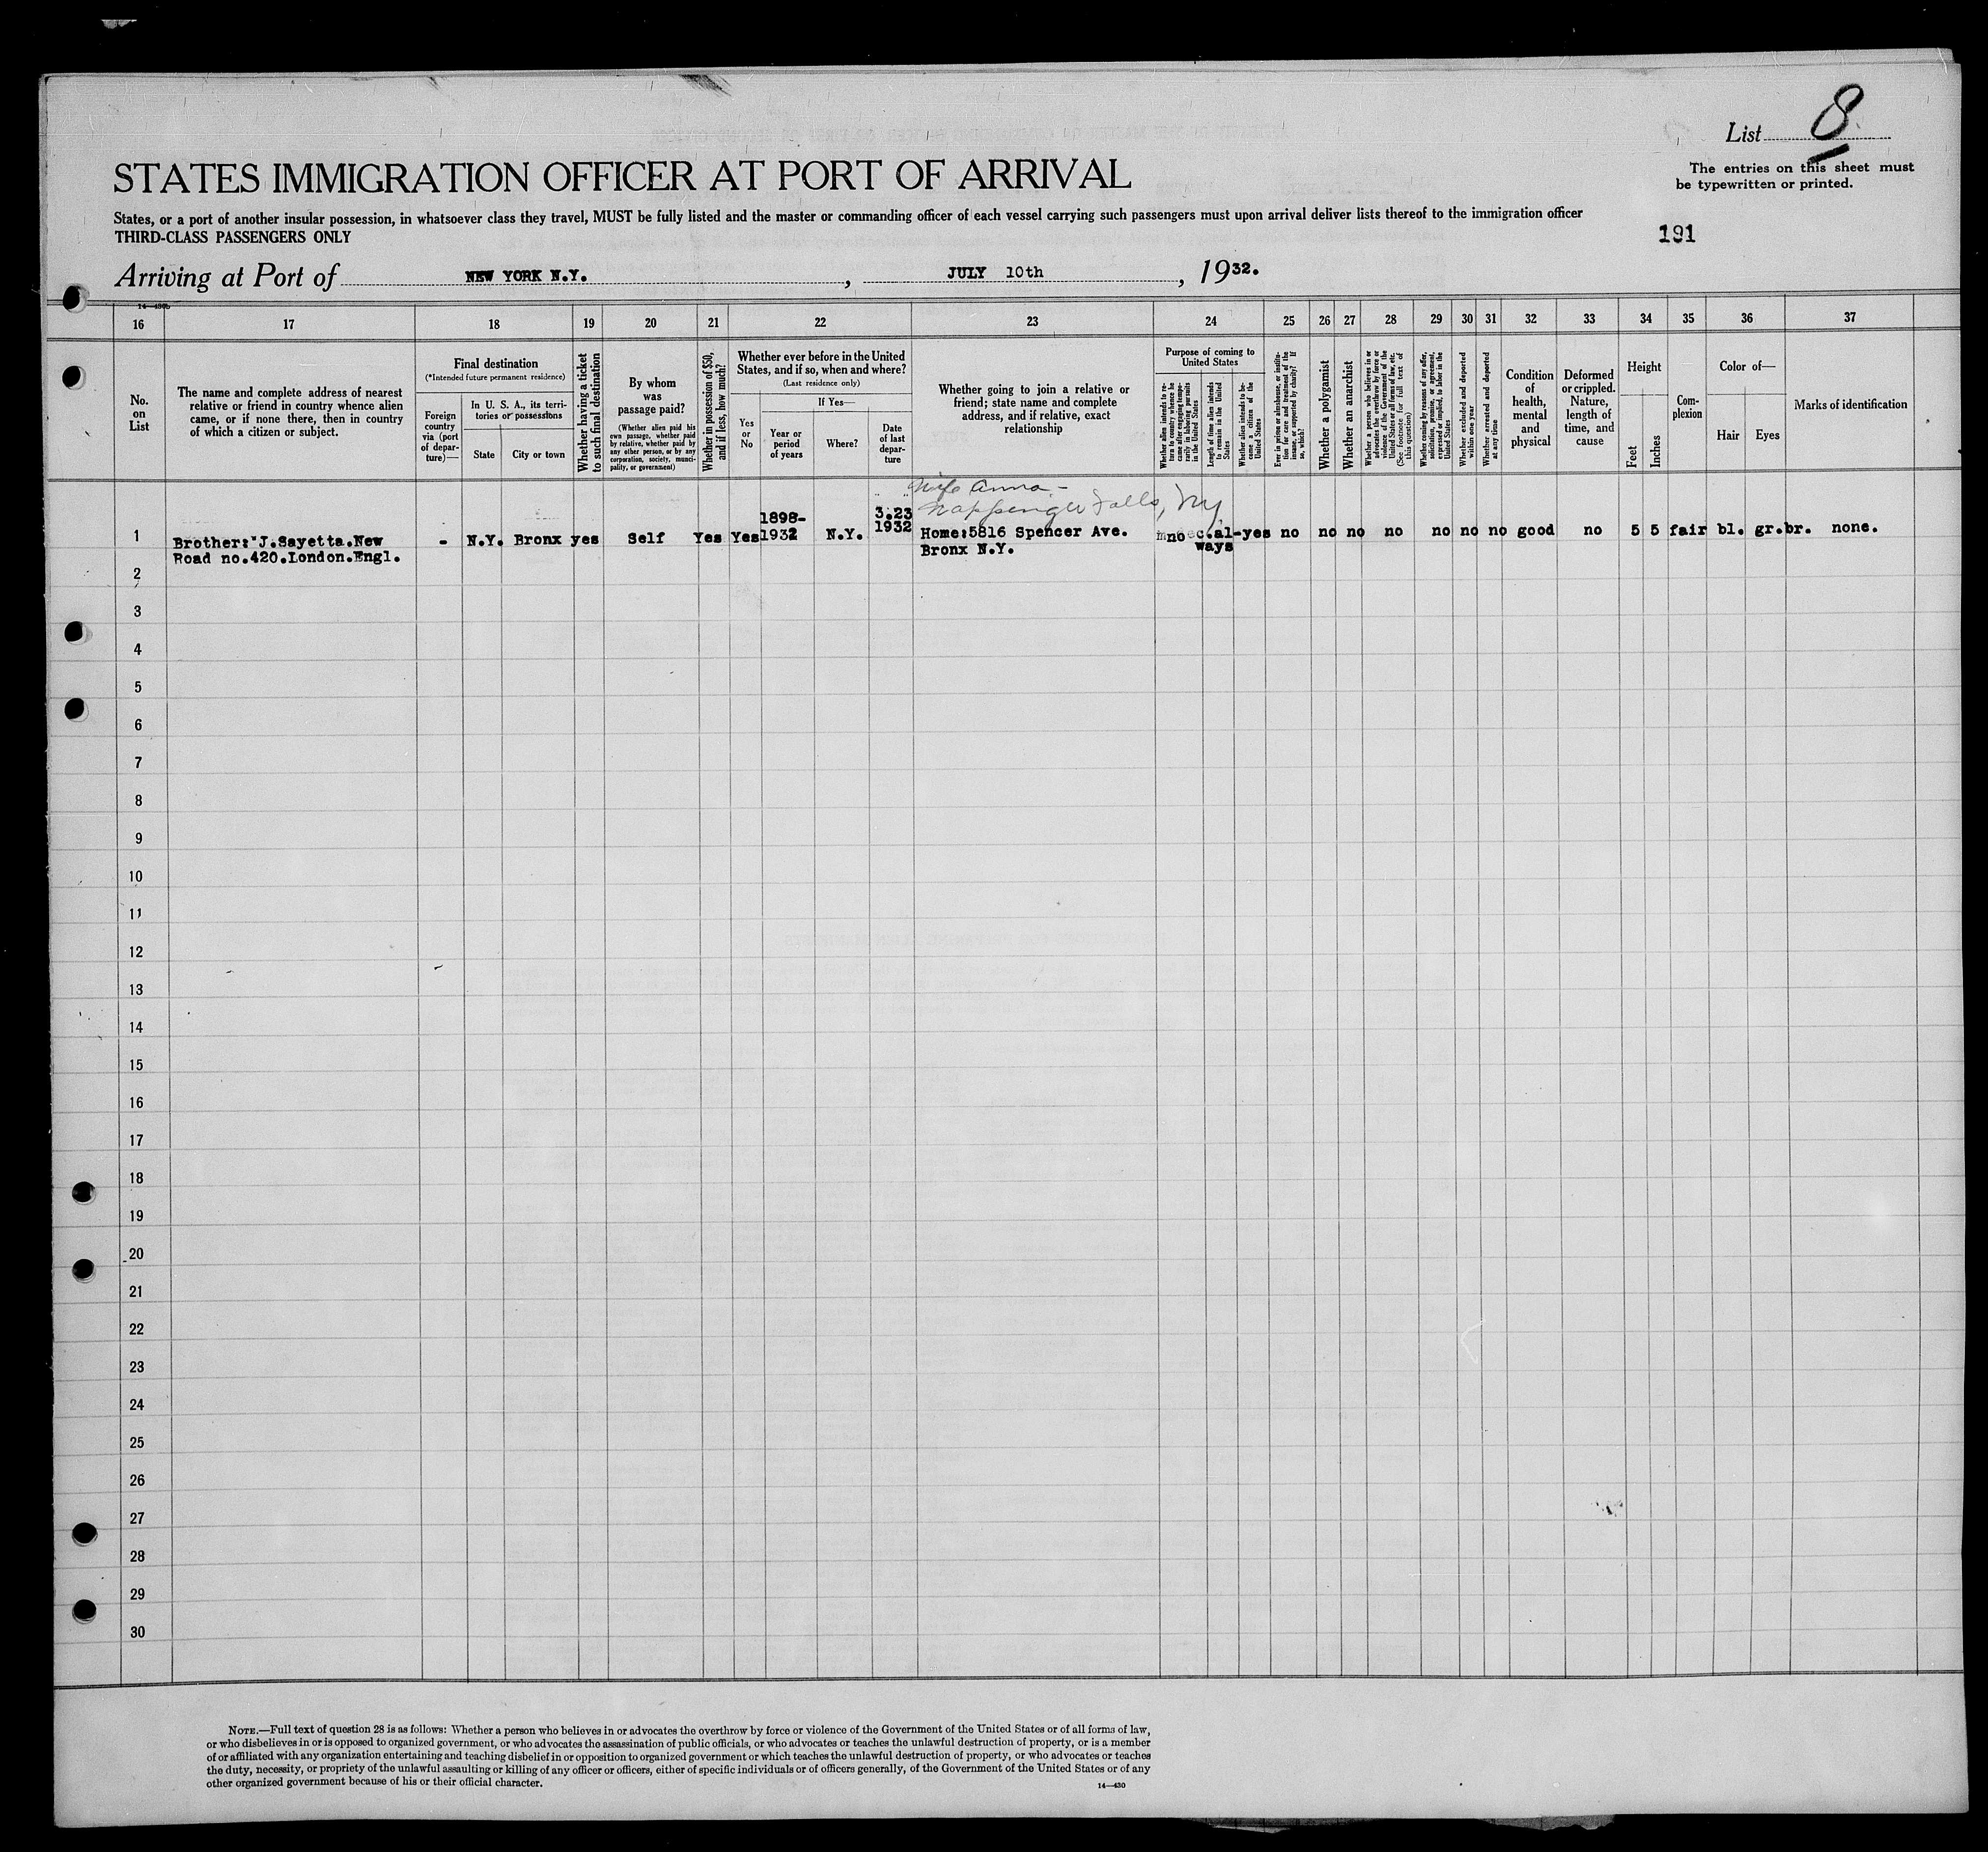 List 8
The entries on this sheet must
be typewritten or printed.
STATES IMMIGRATION OFFICER AT PORT OF ARRIVAL
States, or a port of another insular possession, in whatsoever class they travel, MUST be fully listed and the master or commanding officer of each vessel carrying such passengers must upon arrival deliver lists thereof to the immigration officer
THIRD-CLASS PASSENGERS ONLY
191
Arriving at Port of NEW YORK N.Y., JULY 10th, 1932.
16 17 18 19 20 21 22 23 24 25 26 27 28 29 30 31 32 33 34 35 36 37
No.
on
List
The name and complete address of nearest
relative or friend in country whence alien
came, or if none there, then in country
of which a citizen or subject.
Final destination
(*Intended future permanent residence)
Foreign
country
via (port
of depar-
ture)—
In U. S. A., its terri-
tories or possessions
State
City or town
Whether having a ticket
to such final destination
By whom
was
passage paid?
(Whether alien paid his
own passage, whether paid
by relative, whether paid by
any other person, or by any
corporation, society, munci-
pality, or government)
Whether in possession of $50,
and if less, how much?
Whether ever before in the United
States, and if so, when and where?
(Last residence only)
Yes
or
No
If Yes—
Year or
period
of years
Where?
Date
of last
depar-
ture
Whether going to join a relative or
friend; state name and complete
address, and if relative, exact
relationship
Purpose of coming to
United States
Whether alien intends to re-
turn to country whence he
came after engaging tempo-
rarily in laboring pursuits
in the United States
Length of time alien intends
to remain in the United
States
Whether alien intends to be-
come a citizen of the
United States
Ever in prison or almshouse, or institu-
tion for care and treatment of the
insane, or supported by charity? If
so, which?
Whether a polygamist
Whether an anarchist
Whether a person who believes in or
advocates the overthrow by force or
violence of the Government of the
United States or all forms of law, etc.
(See footnote for full text of
this question)
Whether coming by reasons of any offer,
solicitation, promise, or agreement,
expressed or implied, to labor in the
United States
Whether excluded and deported
within one year
Whether arrested and deported
at any time
Condition
of
health,
mental
and
physical
Deformed
or crippled.
Nature,
length of
time, and
cause
Height
Feet
Inches
Com-
plexion
Color of—
Hair
Eyes
Marks of identification
Wife Anna -
Wappenger Falls, NY
1 Brother: J.Sayetta.New
Road no.420.London.Engl.
- N.Y. Bronx yes Self Yes Yes
1898-
1932
N.Y.
3.23
1932
Home:5816 Spencer Ave.
Bronx N.Y.
no al-
ways
yes no no no no no no no good no 5 5 fair bl. gr.br. none.
2
3
4
5
6
7
8
9
10
11
12
13
14
15
16
17
18
19
20
21
22
23
24
25
26
27
28
29
30
NOTE.—Full text of question 28 is as follows: Whether a person who believes in or advocates the overthrow by force or violence of the Government of the United States or of all forms of law,
or who disbelieves in or is opposed to organized government, or who advocates the assassination of public officials, or who advocates or teaches the unlawful destruction of property, or is a member
of or affiliated with any organization entertaining and teaching disbelief in or opposition to organized government or which teaches the unlawful destruction of property, or who advocates or teaches
the duty, necessity, or propriety of the unlawful assaulting or killing of any officer or officers, either of specific individuals or of officers generally, of the Government of the United States or of any
other organized government because of his or their official character.
14—430